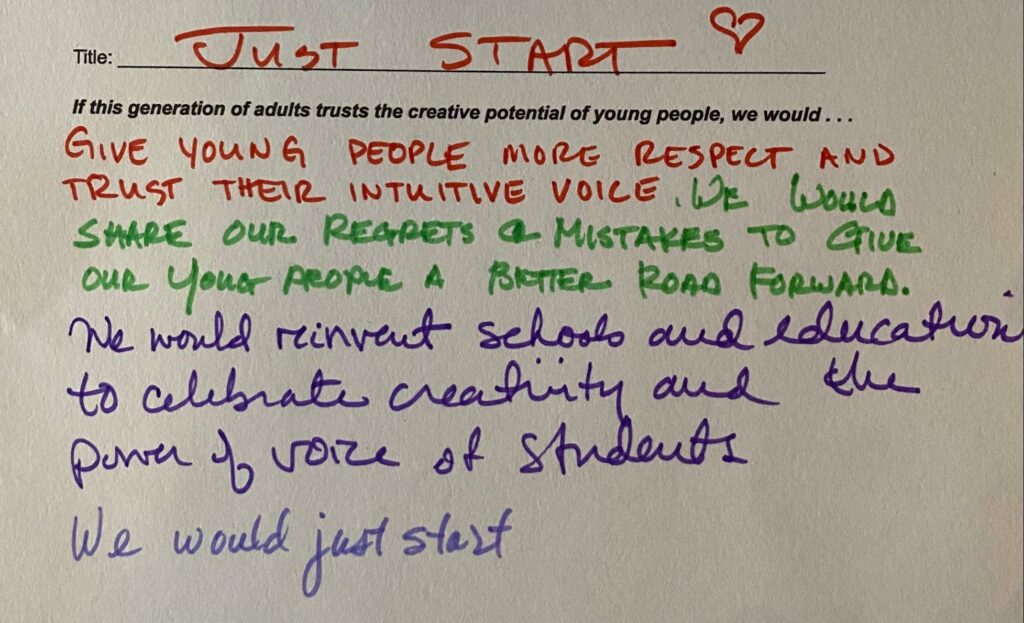 Title: JUST START
If this generation of adults trusts the creative potential of young people, we would . . .
GIVE YOUNG PEOPLE MORE RESPECT AND
TRUST THEIR INTUITIVE VOICE. WE WOULD
SHARE OUR REGRETS & MISTAKES TO GIVE
OUR YOUNG PEOPLE A BETTER ROAD FORWARD.
We would reinvent schools and education
to celebrate creativity and the
power of voice of students
We would just start